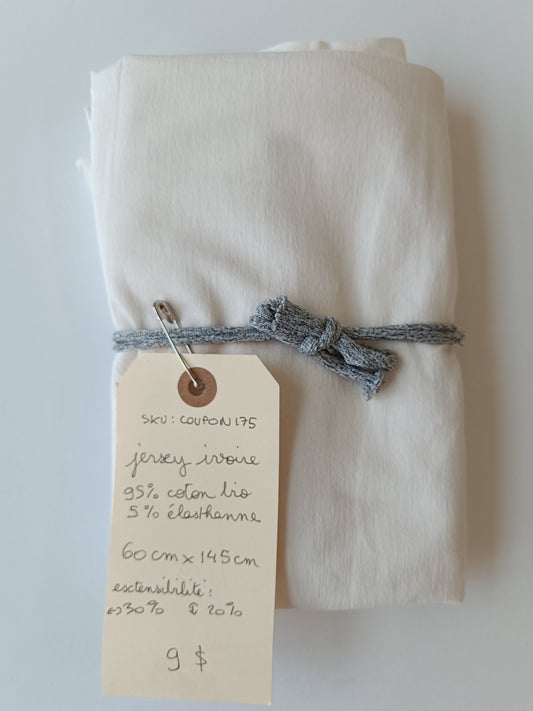 SKU : COUPON175
jersey ivoire
95% coton bio
5% élasthanne
60 cm x 145 cm
extensibilité :
↔30% ↕ 20%
9 $